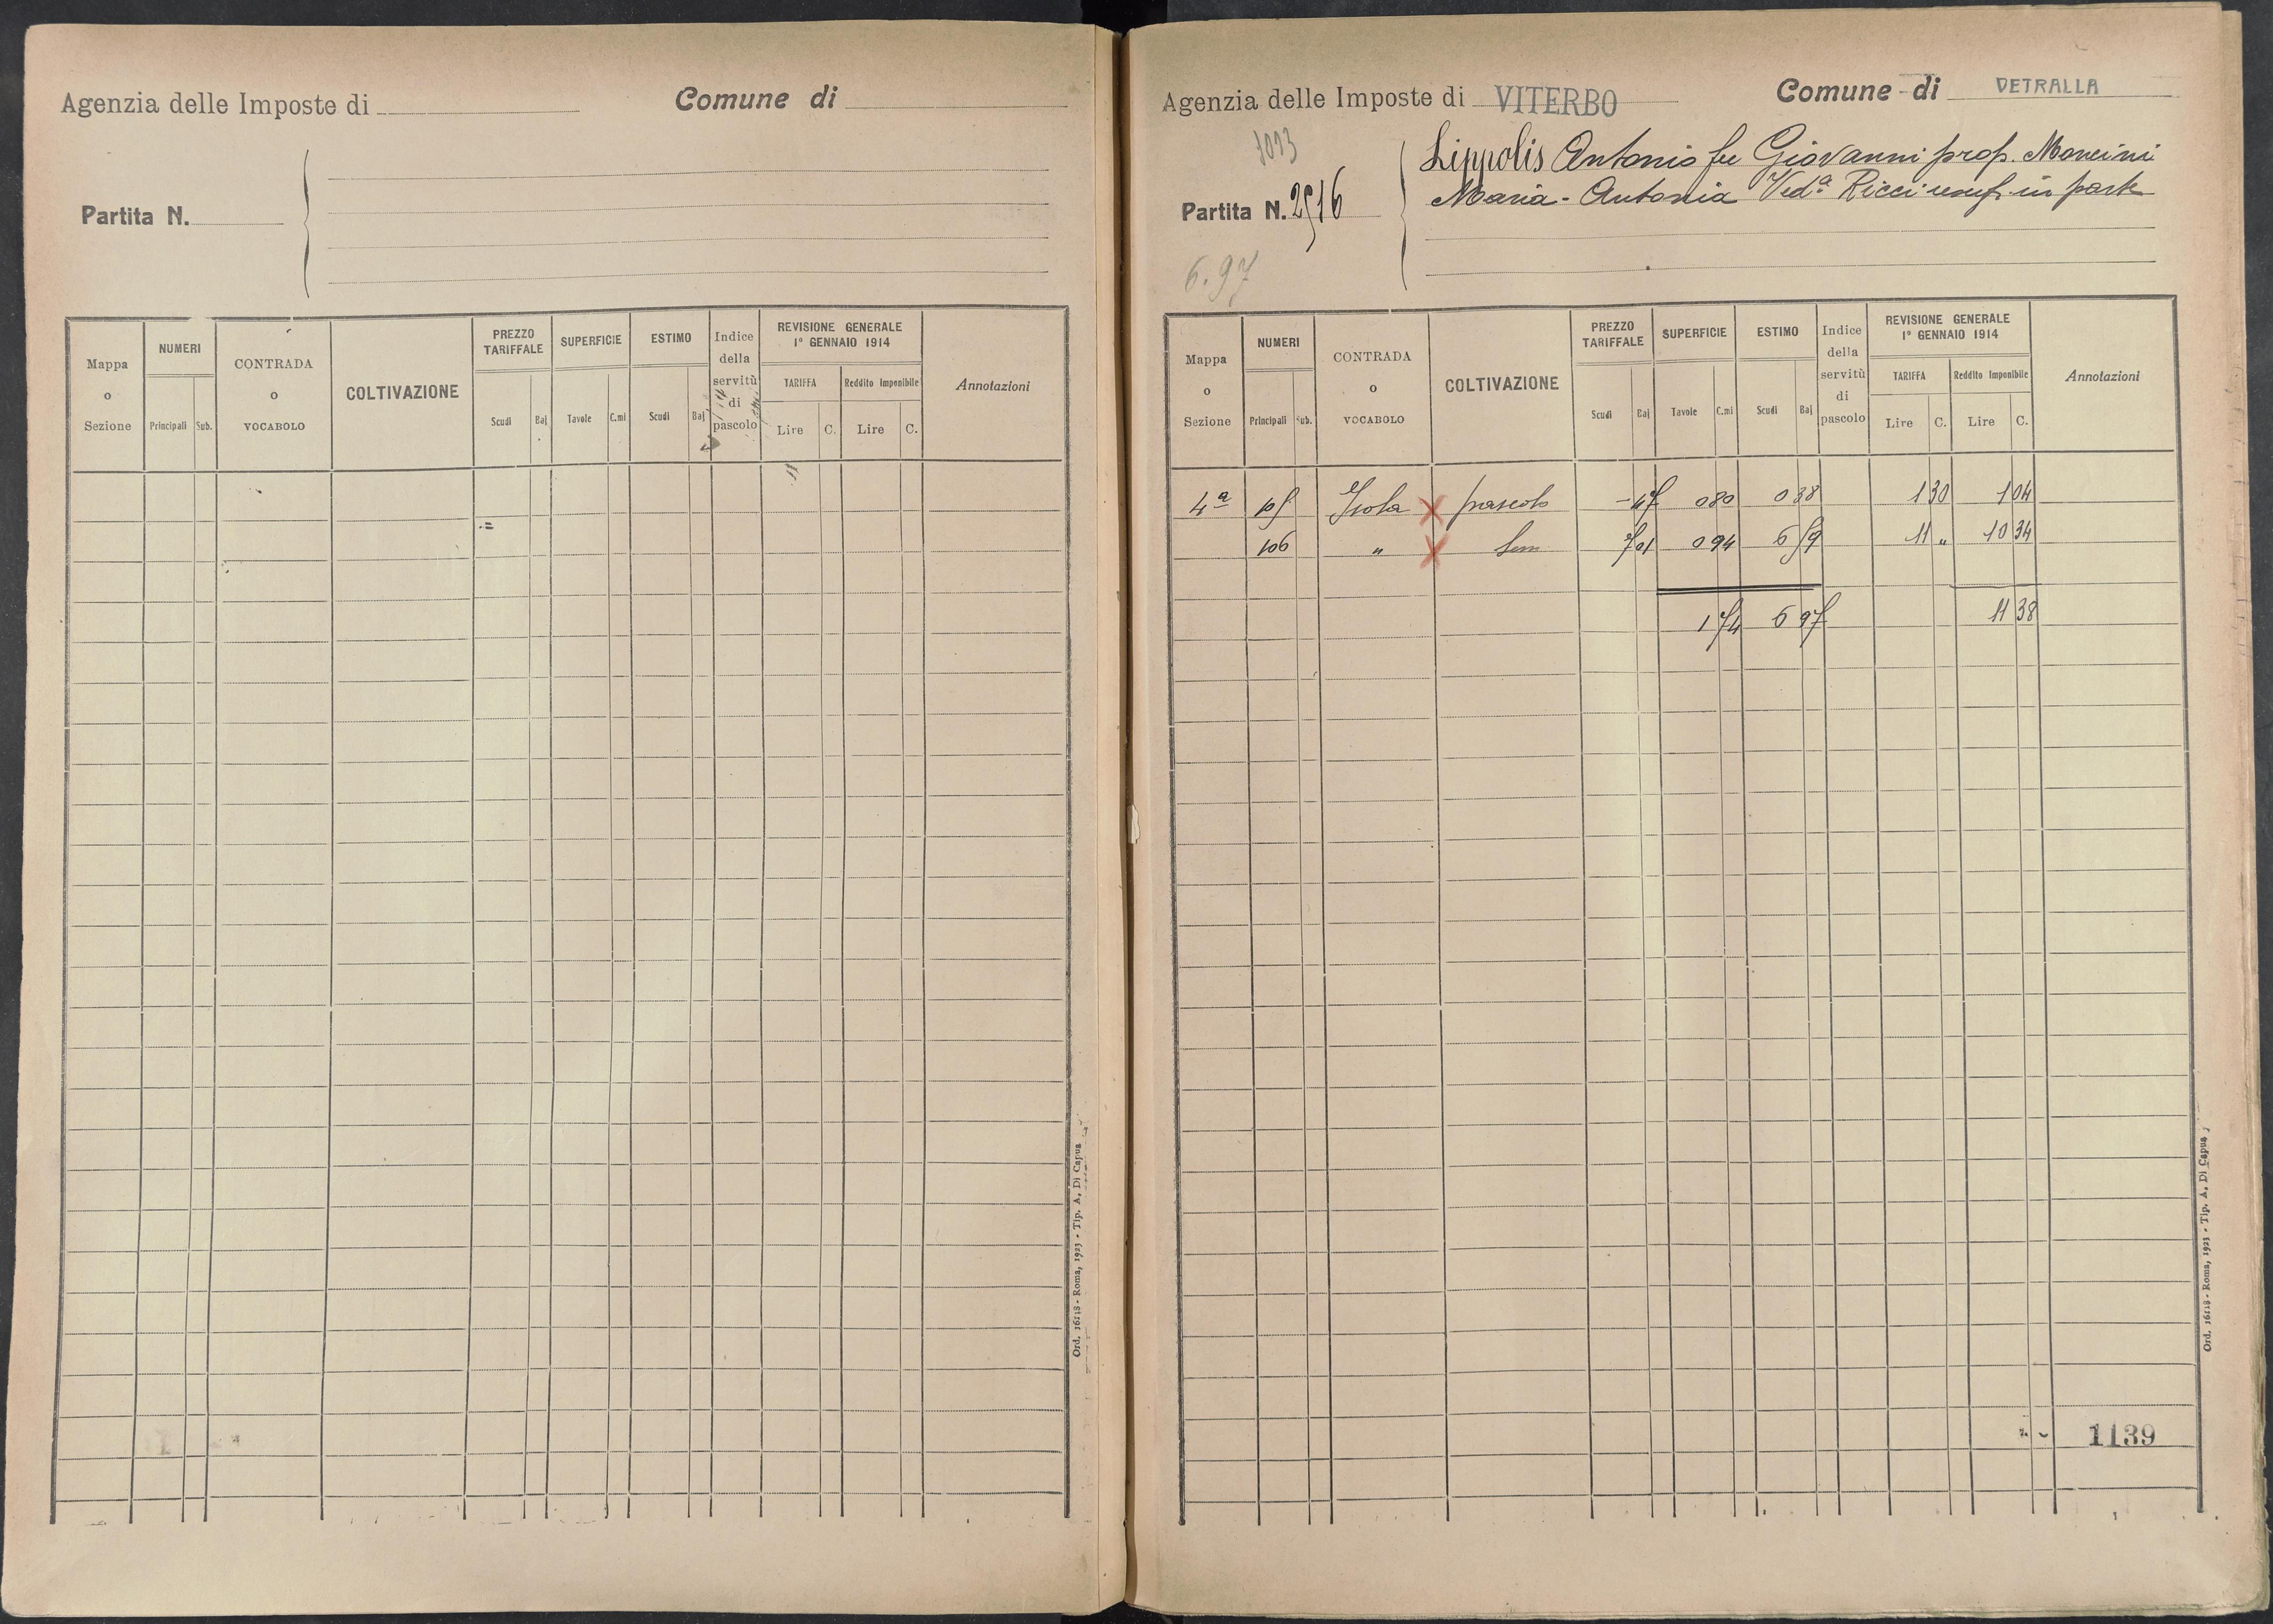 Agenzia delle Imposte di
Comune di
Partita N.
Mappa o Sezione
NUMERI
Principali Sub.
CONTRADA o VOCABOLO
COLTIVAZIONE
PREZZO TARIFFALE
Scudi Baj
SUPERFICIE
Tavole C.mi
ESTIMO
Scudi Baj
Indice della servitù di pascolo
REVISIONE GENERALE
1° GENNAIO 1914
TARIFFA
Lire C.
Reddito Imponibile
Lire C.
Annotazioni
Ord. 16118 - Roma, 1923 - Tip. A. Di Capua
Agenzia delle Imposte di VITERBO
Comune di VETRALLA
1013
Lippolis Antonio fu Giovanni prop. Mancini
Maria-Antonia Ved.a Ricci usuf. in parte
Partita N. 2516
6.97
Mappa o Sezione
NUMERI
Principali Sub.
CONTRADA o VOCABOLO
COLTIVAZIONE
PREZZO TARIFFALE
Scudi Baj
SUPERFICIE
Tavole C.mi
ESTIMO
Scudi Baj
Indice della servitù di pascolo
REVISIONE GENERALE
1° GENNAIO 1914
TARIFFA
Lire C.
Reddito Imponibile
Lire C.
Annotazioni
4a 105 Isola pascolo - 47 0 80 0 38 1 30 1 04
106 " Sem 7 01 0 94 6 59 11 " 10 34
1 74 6 97 11 38
1139
Ord. 16118 - Roma, 1923 - Tip. A. Di Capua